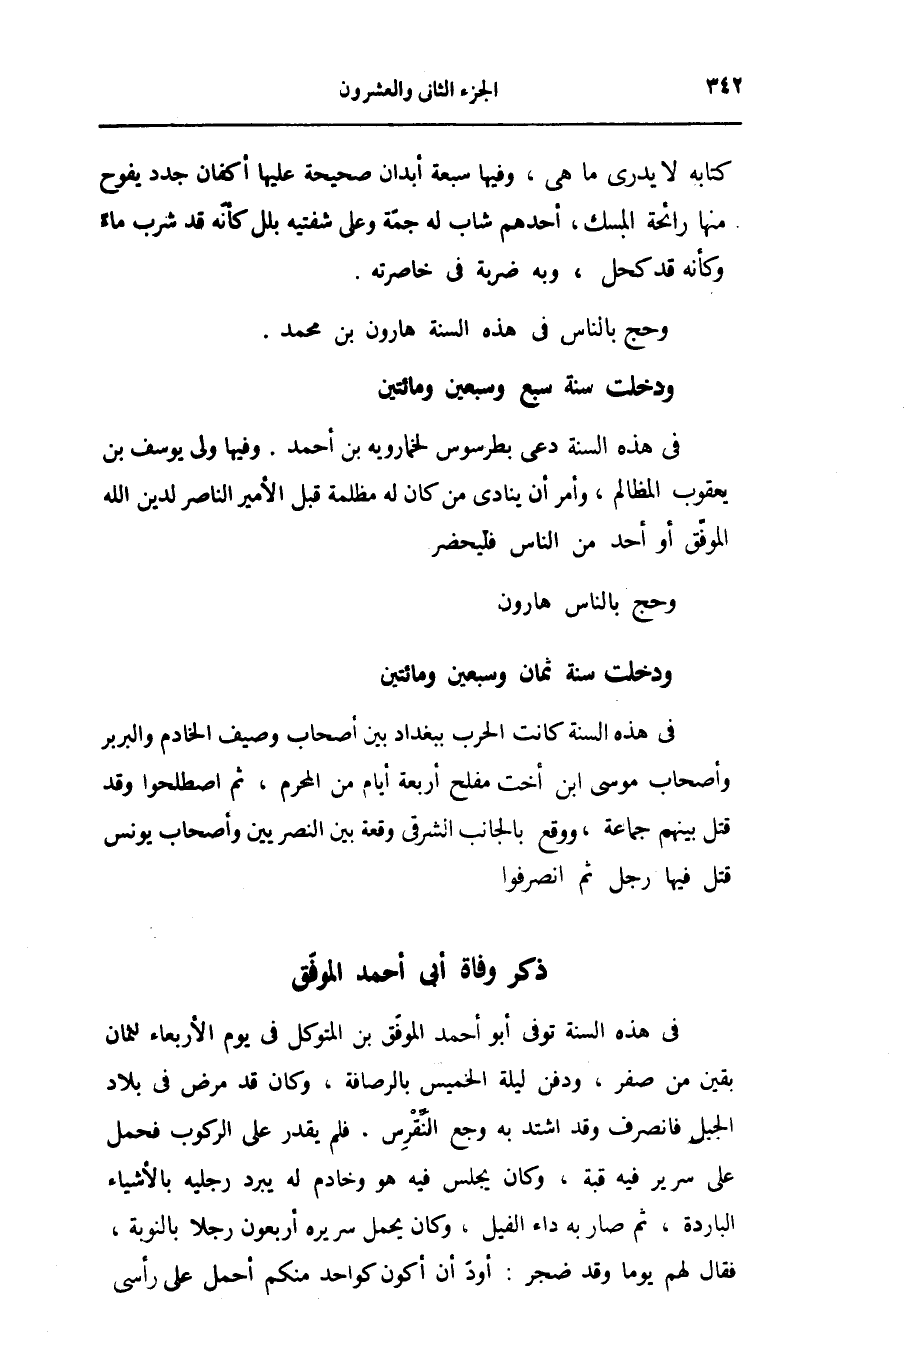 ٣٤٢
الجزء الثانى والعشرون
كتابه لا يدرى ما هى ، وفيها سبعة أبدان صحيحة عليها أكفان جدد يفوح
منها رائحة المسك ، أحدهم شاب له جمّة وعلى شفتيه بلل كأنّه قد شرب ماءً
وكأنه قد كحل ، وبه ضربة فى خاصرته .
وحج بالناس فى هذه السنة هارون بن محمد .
ودخلت سنة سبع وسبعين ومائتين
فى هذه السنة دعى بطرسوس لخمارويه بن أحمد . وفيها ولى يوسف بن
يعقوب المظالم ، وأمر أن ينادى من كان له مظلمة قبل الأمير الناصر لدين الله
الموفّق أو أحد من الناس فليحضر
وحج بالناس هارون
ودخلت سنة ثمان وسبعين ومائتين
فى هذه السنة كانت الحرب ببغداد بين أصحاب وصيف الخادم والبربر
وأصحاب موسى ابن أخت مفلح أربعة أيام من المحرم ، ثم اصطلحوا وقد
قتل بينهم جماعة ، ووقع بالجانب الشرقى وقعة بين النصريين وأصحاب يونس
قتل فيها رجل ثم انصرفوا
ذكر وفاة أبى أحمد الموفّق
فى هذه السنة توفى أبو أحمد الموفّق بن المتوكل فى يوم الأربعاء لثمان
بقين من صفر ، ودفن ليلة الخميس بالرصافة ، وكان قد مرض فى بلاد
الجبل فانصرف وقد اشتد به وجع النِّقْرِس . فلم يقدر على الركوب فحمل
على سرير فيه قبة ، وكان يجلس فيه هو وخادم له يبرد رجليه بالأشياء
الباردة ، ثم صار به داء الفيل ، وكان يحمل سريره أربعون رجلا بالنوبة ،
فقال لهم يوما وقد ضجر : أودّ أن أكون كواحد منكم أحمل على رأسى